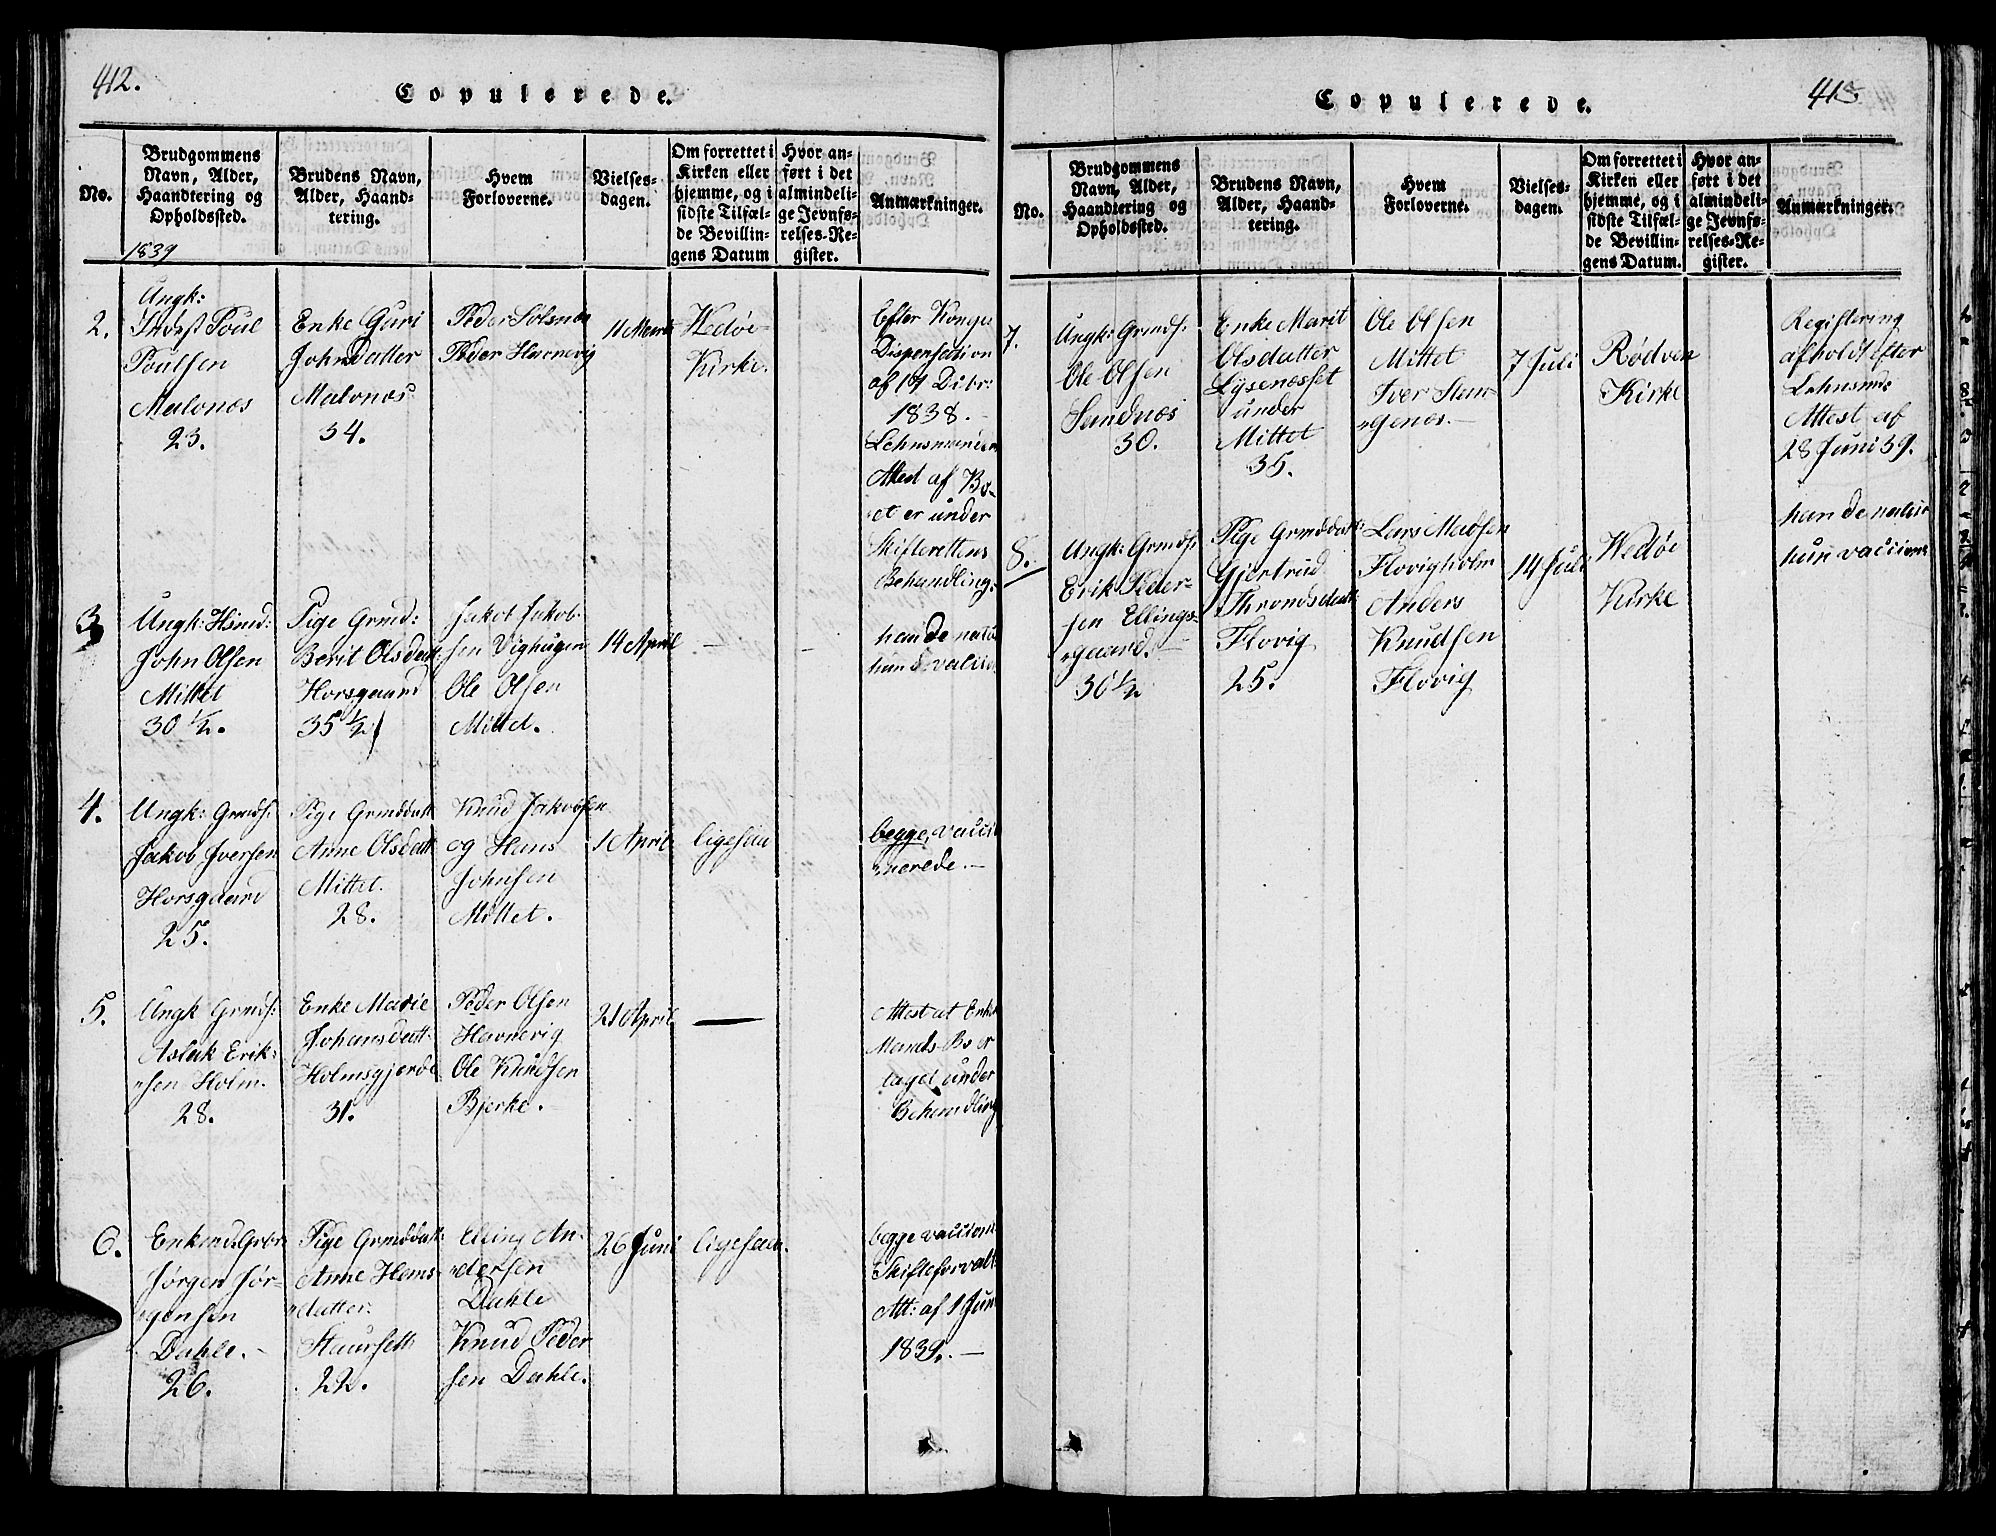 412.
Copulerede.
No.
Brudgommens
Navn, Alder,
Haandtering og
Opholdssted.
1839
Brudens Navn,
Alder, Haand-
tering.
Hvem
Forloverne.
Vielses-
dagen.
Om forrettet i
Kirken eller
hjemme, og i
sidste Tilfæl-
de Bevillin-
gens Datum
Hvor an-
ført i det
almindeli-
ge Jevnfø-
relses-Re-
gister.
Anmærkninger.
2.
Ungk:
Poul
Poulsen
Malonæs
23.
Enke Guri
Johnsdatter
Malonæs
34.
Peder Solsnæs
Peder Havnevig
11 Marti
Wedøe
Kirke.
Efter Konge
Dispensation
af 17 Dcbr:
1838.-
Lehnsmanden
Attest af Bo-
et er under
Skifterettens
Behandling.
3
Ungk:
John Olsen
Mittet
30 ½.
Pige Grmd:
Berit Olsdatt
Horsgaard
35 ½
Jakob Jakob-
sen
Ole Olsen
Mittet.
14 April
-
-
han de natur
4.
Ungk: Grmds:
Jakob Iversen
Horsgaard
25.
Pige Grmddatt
Anne Olsdatt
Mittet.
28.
Knud Jakobsen
og Hans
Johnsen
Mittet.
1 April
ligesaa
begge vacci
nerede.-
5.
Ungk Grmds:
Aslak Erik-
sen Holm.
28.
Enke Marie
Johansdatt-
Holmsgjerde
31.
Peder Olsen
Havnevig
Ole Knudsen
Bjerke.-
21 April
—
Attest at Enke
Mands Bo er
taget under
Behandling
6.
Enkmd: Grbr:
Jørgen Jør-
gensen
Dahle.-
26.
Pige Grmddatt
Anne Hans-
datter
Staurseth
22.
Elling An-
dersen
Dahle
Knud Peder
sen Dahle.
26 Juni
ligesaa.
begge vaccine
Skifteforvalt
Att: af 1 Juni
1839.-
Copulerede.
413
No.
Brudgommens
Navn, Alder,
Haandtering og
Opholdssted.
Brudens Navn,
Alder, Haand-
tering.
Hvem
Forloverne.
Vielses-
dagen.
Om forrettet i
Kirken eller
hjemme, og i
sidste Tilfæl-
de Bevillin-
gens Datum.
Hvor an-
ført i det
almindeli-
ge Jevnfø-
relses-Re-
gister.
Anmærkninger.
7.
Ungk: Grmds:
Ole Olsen
Sandnæs
30.
Enke Marit
Olsdatter
Lysenæsset
under
Mittet
35.
Ole Olsen
Mittet
Iver Stor-
genæs.-
7 Juli
Rødven
Kirke
Registering
afholdt efter
Lehnsmds
Attest af
28 Juni 39.
8.
Ungk: Grmds:
Erik Peder-
sen Ellings-
gaard.-
30½
Pige Grmddatt
Gjertrud
Throndsdatt
Flovig
25.
Lars Madsen
Flovigholm
Anders
Knudsen
Flovig
14 Juli
Wedøe
Kirke
han de natur
hun vaccine